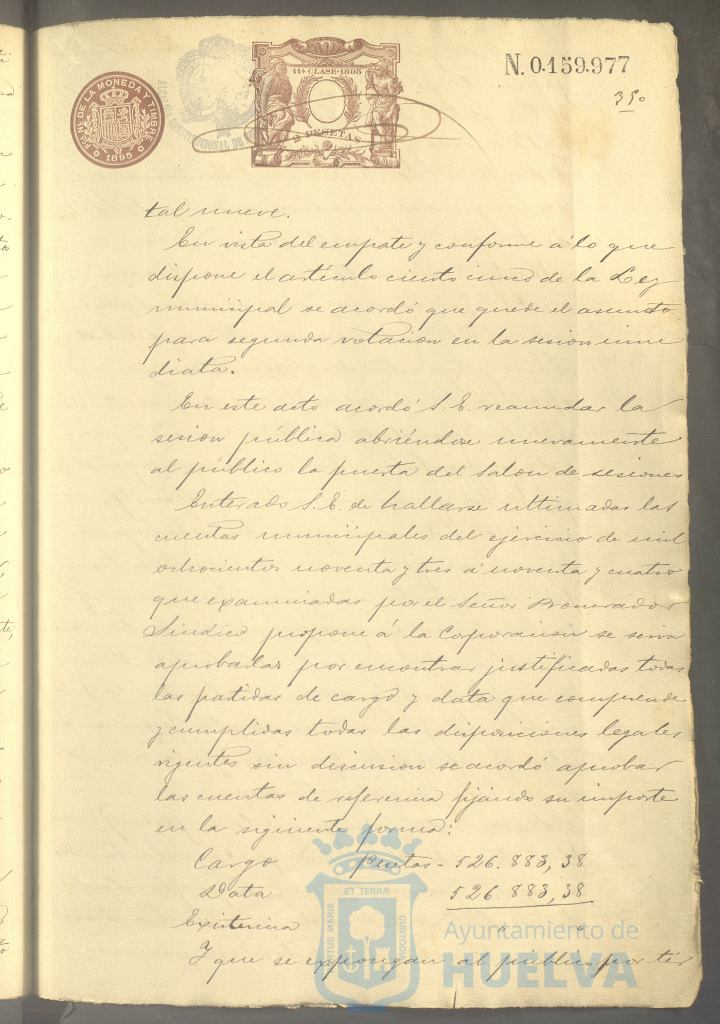 N. 0.159.977
350
FCA. NAL. DE LA MONEDA Y TIMBRE
1895
11ª CLASE-1895
2 PESETAS
tal nueve.
En vista del empate y conforme á lo que
dispone el artículo ciento cinco de la Ley
municipal se acordó que quede el asunto
para segunda votacion en la sesion inme
diata.
En este acto acordó S. E. reanudar la
sesion pública abriéndose nuevamente
al público la puerta del Salon de sesiones
Enterado S. E. de hallarse ultimadas las
cuentas municipales del ejercicio de mil
ochocientos noventa y tres á noventa y cuatro
que examinadas por el Señor Procurador
Sindico propone á la Corporacion se sirva
aprobarlas por encontrar justificadas todas
las partidas de cargo y data que comprende
y cumplidas todas las disposiciones legales
vigentes sin discusion se acordó aprobar
las cuentas de referencia fijando su importe
en la siguiente forma:
Cargo pesetas - 526.883,38
Data 526.883,38
Existencia " "
Y que se expongan al público por tér
ET TERRA
PORTUS MARIS
CUSTODIA
Ayuntamiento de
HUELVA